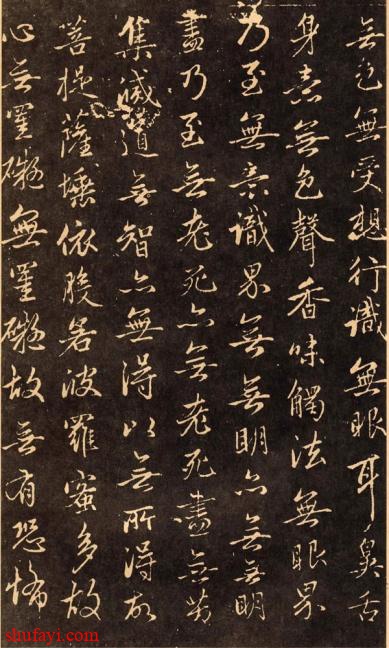 無色無受想行識無眼耳鼻舌
身意無色聲香味觸法無眼界
乃至無意識界無無明亦無無明
盡乃至無老死亦無老死盡無苦
集滅道無智亦無得以無所得故
菩提薩埵依般若波羅蜜多故
心無罣礙無罣礙故無有恐怖
shufayi.com